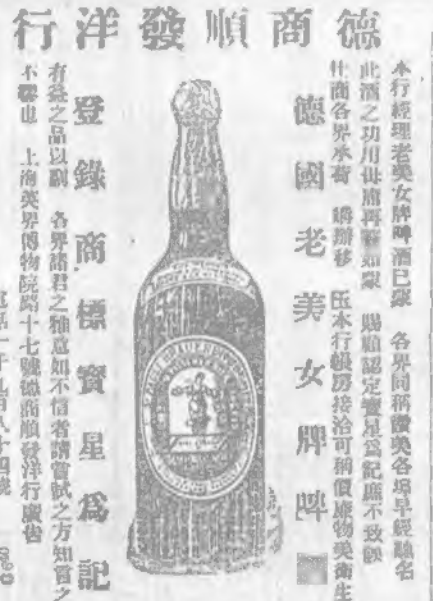 德商順發洋行
本行經理老美女牌啤酒已蒙 各界同稱讚美各埠早經馳名
此酒之功用毋庸再贅如蒙 賜顧認定寶星爲記庶不致誤
仕商各界承荷 購辦移 玉本行帳房接洽可稱價廉物美衛生
德國老美女牌啤
登錄商標寶星爲記
有益之品以副 各界諸君之雅意如不信者請嘗試之方知言之
不謬也 上海英界博物院路十七號德商順發洋行廣告
電話一千九百八十四號